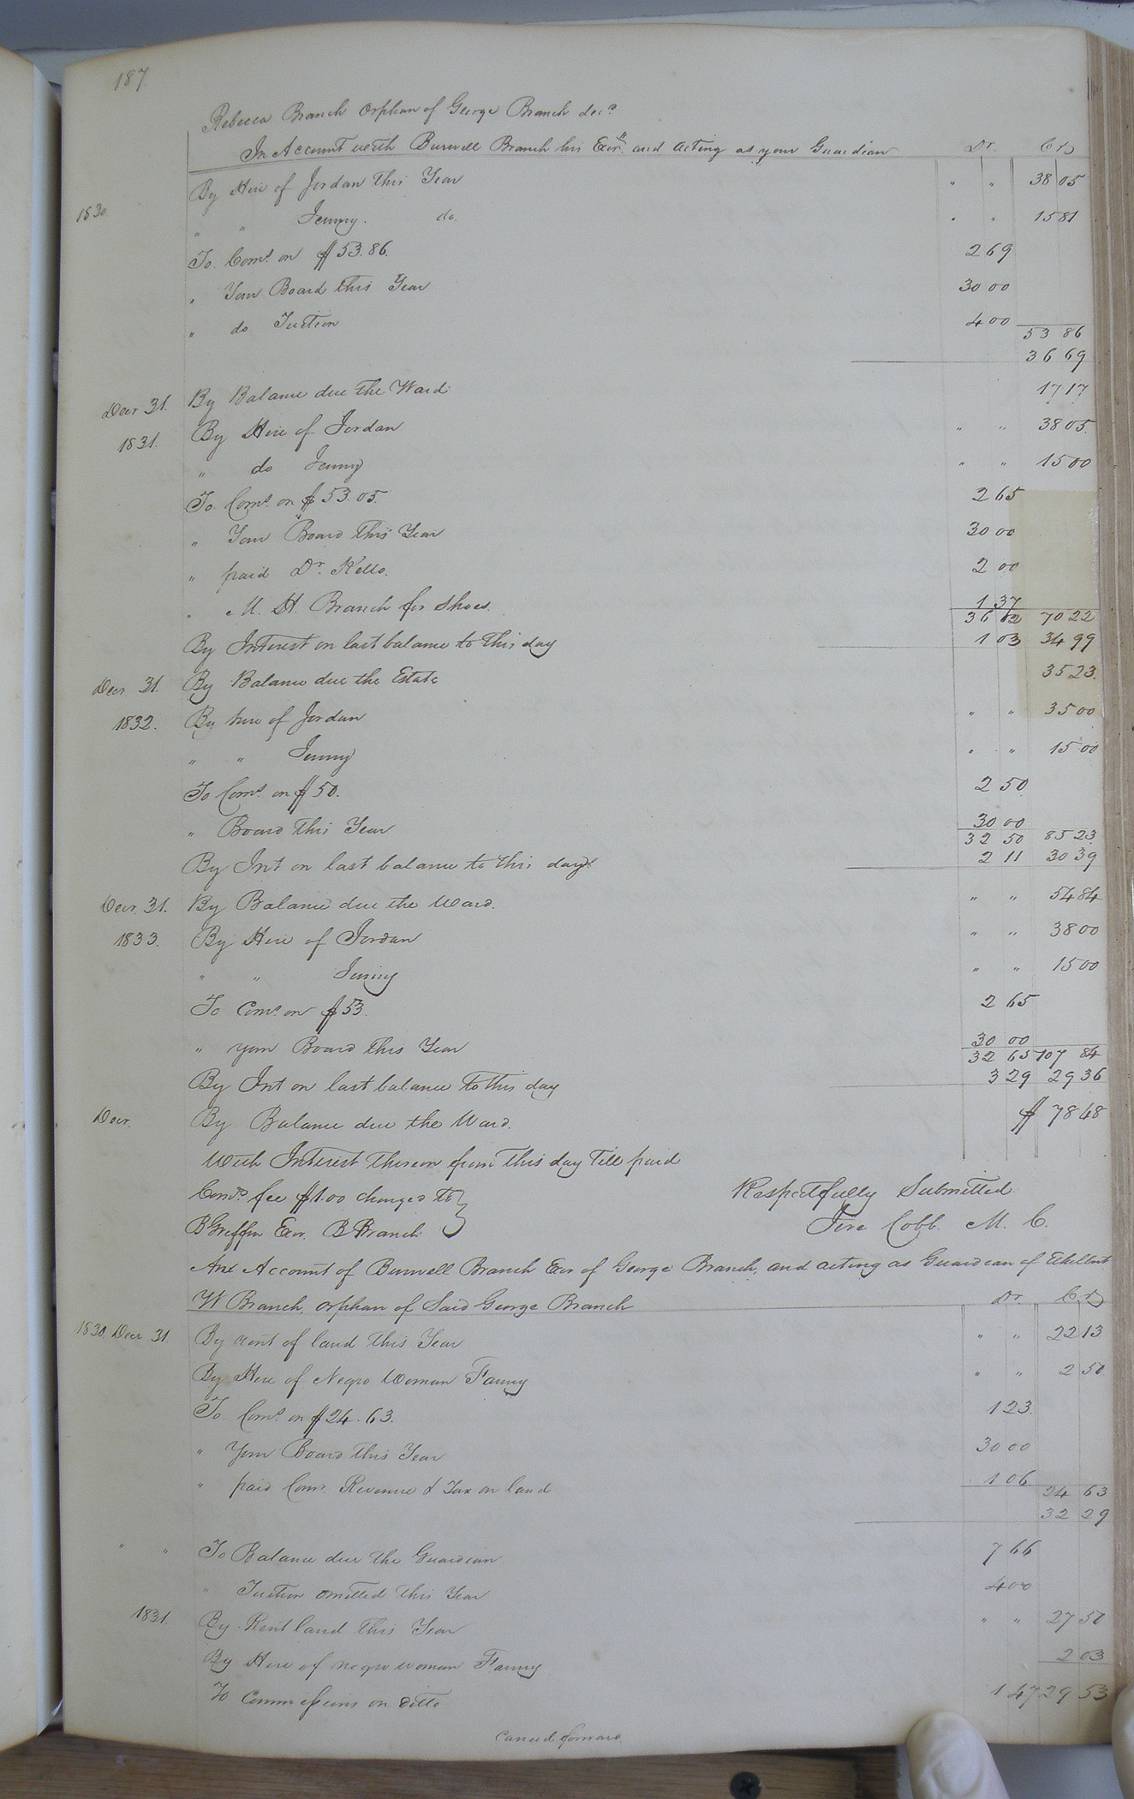 187.
Rebecca Branch Orphan of George Branch decd
In Account with Burwell Branch his Exr. and acting as your Guardian Dr. Crs
1830. By Hire of Jordan this Year " " 38 05
" " Jenny. do. " " 15 81
To Coms. on $53.86. 2 69
" Your Board this Year 30 00
" do Tuition 4 00
53 86
36 69
Decr 31. By Balance due the Ward 17 17
1831. By Hire of Jordan " " 38 05.
" do Jenny " " 15 00
To Coms. on $53.05. 2 65
" Your Board this Year 30 00
" paid Dr. Kello. 2 00
" M. H Branch for Shoes. 1 37
36 02 70 22
By Interest on last balance to this day 1 03 34 99
Decr 31. By Balance due the Estate 35 23.
1832. By hire of Jordan " " 35 00
" " Jenny " " 15 00
To Coms. on $50. 2 50
" Board this Year 30 00
32 50 85 23
By Int on last balance to this day 2 11 30 39
Decr. 31. By Balance due the Ward. " " 54 84
1833. By Hire of Jordan " " 38 00
" " Jenny " " 15 00
To Coms. on $53. 2 65
" your Board this Year 30 00
32 65 107 84
By Int on last balance to this day 3 29 29 36
Decr. By Balance due the Ward. $ 78 48
With Interest thereon from this day Till paid
fee $1.00 charged to Respectfully Submitted
B Griffin Exr. B Branch Cobb. M. C.
Account of Burwell Branch Exr of George Branch, and acting as Guardian of
W Branch, orphan of Said George Branch Dr. Crs
1830 Decr 31 By rent of land this Year " " 22 13
By Hire of Negro Woman Fanny " " 2 50
To Coms. on $24.63. 1 23
" Your Board this Year 30 00
" paid Revenue & Tax on land 1 06
24 63
32 29
" " To Balance due the Guardian 7 66
" Tuition omitted this Year 4 00
1831 By Rent land this Year " " 27 50
By Hire of negro woman Fanny 2 03
To Commissions on Ditto 1 47 29 53
Carried forward